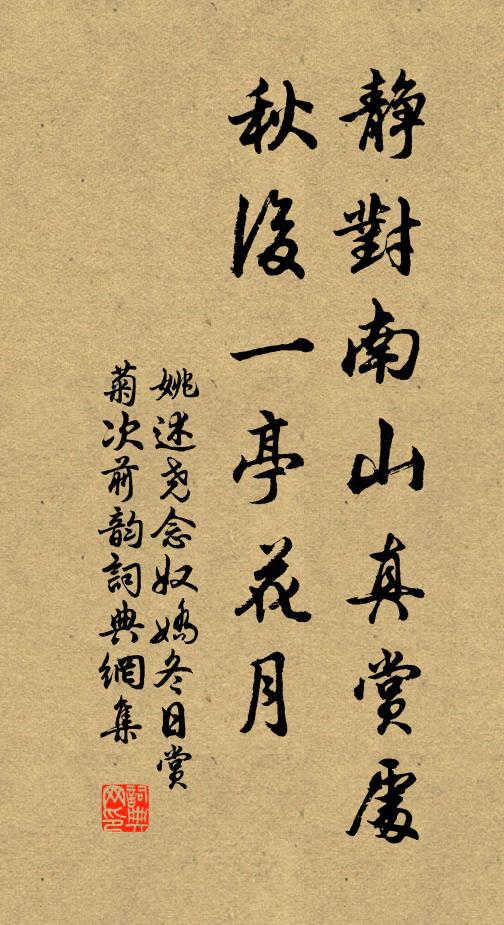 靜對南山真賞處
秋後一亭花月
姚述尧念奴嬌冬日賞
菊次前韵詞典網集
詞典
网印